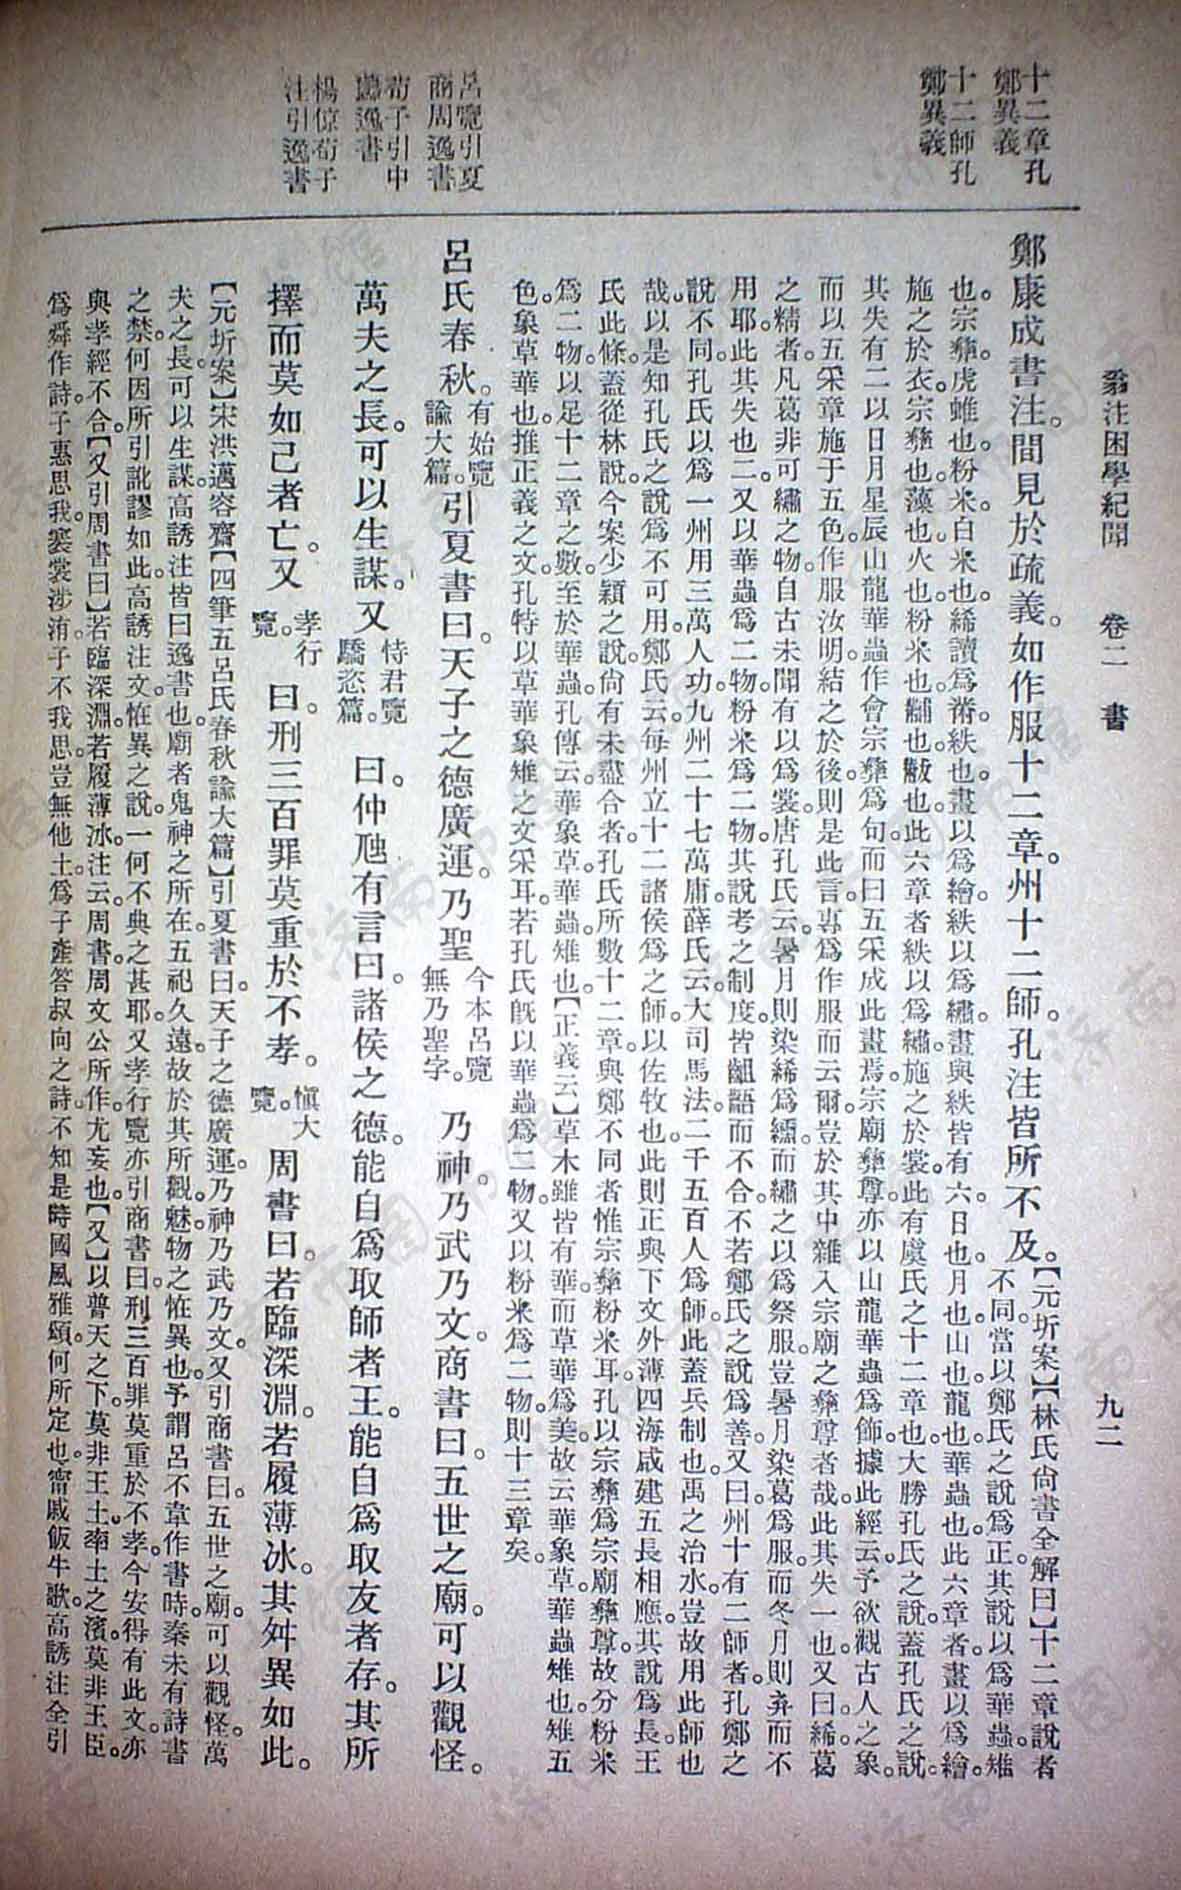 翁注困學紀聞　卷二　書　九二
十二章孔
鄭異義
十二師孔
鄭異義
呂覽引夏
商周逸書
荀子引中
蘬逸書
楊倞荀子
注引逸書
鄭康成書注。間見於疏義。如作服十二章。州十二師。孔注皆所不及。【元圻案】【林氏尚書全解曰】十二章說者
不同。當以鄭氏之說爲正。其說以爲華蟲。雉
也。宗彝。虎蜼也。粉米。白米也。絺讀爲黹。紩也。畫以爲繪。紩以爲繡。畫與紩皆有六。日也。月也。山也。龍也。華蟲也。此六章者。畫以爲繪。
施之於衣。宗彝也。藻也。火也。粉米也。黼也。黻也。此六章者紩以爲繡。施之於裳。此有虞氏之十二章也。大勝孔氏之說。蓋孔氏之說。
其失有二。以日月星辰山龍華蟲作會宗彝爲句。而曰五采成此畫焉。宗廟彝尊。亦以山龍華蟲爲飾。據此經云。予欲觀古人之象。
而以五采章施于五色。作服汝明。結之於後。則是此言。專爲作服而云爾。豈於其中雜入宗廟之彝尊者哉。此其失一也。又曰。絺。葛
之精者。凡葛非可繡之物。自古未聞有以爲裳。唐孔氏云。暑月則染絺爲纁。而繡之以爲祭服。豈暑月染葛爲服。而冬月則弃而不
用耶。此其失也二。又以華蟲爲二物。粉米爲二物。其說考之制度。皆齟齬而不合。不若鄭氏之說爲善。又曰。州十有二師者。孔鄭之
說不同。孔氏以爲一州用三萬人功。九州二十七萬庸。薛氏云。大司馬法。二千五百人爲師。此蓋兵制也。禹之治水。豈故用此師也
哉。以是知孔氏之說爲不可用。鄭氏云。每州立十二諸侯爲之師。以佐牧也。此則正與下文外薄四海咸建五長相應。其說爲長。王
氏此條。蓋從林說。今案少穎之說。尚有未盡合者。孔氏所數十二章。與鄭不同者。惟宗彝粉米耳。孔以宗彝爲宗廟彝尊。故分粉米
爲二物。以足十二章之數。至於華蟲。孔傳云。華象草華。蟲。雉也。【正義云】草木雖皆有華。而草華爲美。故云華象草。華蟲雉也。雉五
色。象草華也。推正義之文。孔特以草華象雉之文采耳。若孔氏旣以華蟲爲二物。又以粉米爲二物。則十三章矣。
呂氏春秋。有始覽諭大篇。引夏書曰。天子之德廣運。乃聖今本呂覽無乃聖字。乃神。乃武乃文。商書曰。五世之廟。可以觀怪。
萬夫之長。可以生謀。又恃君覽驕恣篇。曰。仲虺有言曰。諸侯之德。能自爲取師者王。能自爲取友者存。其所
擇而莫如己者亡。又孝行覽。曰。刑三百。罪莫重於不孝。愼大覽。周書曰。若臨深淵。若履薄冰。其舛異如此。
【元圻案】宋洪邁容齋【四筆五呂氏春秋諭大篇】引夏書曰。天子之德廣運。乃神乃武乃文。又引商書曰。五世之廟。可以觀怪。萬
夫之長。可以生謀。高誘注皆曰逸書也。廟者鬼神之所在。五祀久遠。故於其所觀。魅物之怪異也。予謂呂不韋作書時。秦未有詩書
之禁。何因所引訛謬如此。高誘注文。怪異之說。一何不典之甚耶。又孝行覽亦引商書曰。刑三百罪莫重於不孝。今安得有此文。亦
與孝經不合。【又引周書曰】若臨深淵。若履薄冰。注云。周書。周文公所作。尤妄也。【又】以普天之下。莫非王土。率土之濱。莫非王臣。
爲舜作詩。子惠思我。褰裳涉洧。子不我思。豈無他士。爲子產答叔向之詩。不知是時國風雅頌。何所定也。甯戚飯牛歌。高誘注全引